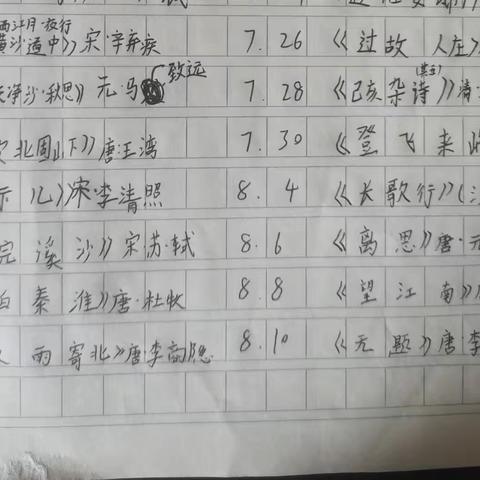 西江月·夜行
黄沙道中》宋·辛弃疾 7.26 《过故人庄》
致远
天净沙·秋思》元·马 7.28 《己亥杂诗(其五)》清
次北固山下》唐王湾 7.30 《登飞来
示儿》宋·李清照 8.4 《长歌行》(汉
浣溪沙》宋苏·轼 8.6 《离思》唐·元
泊秦淮》唐·杜牧 8.8 《望江南》
雨寄北》唐李商隐 8.10 《无题》唐李